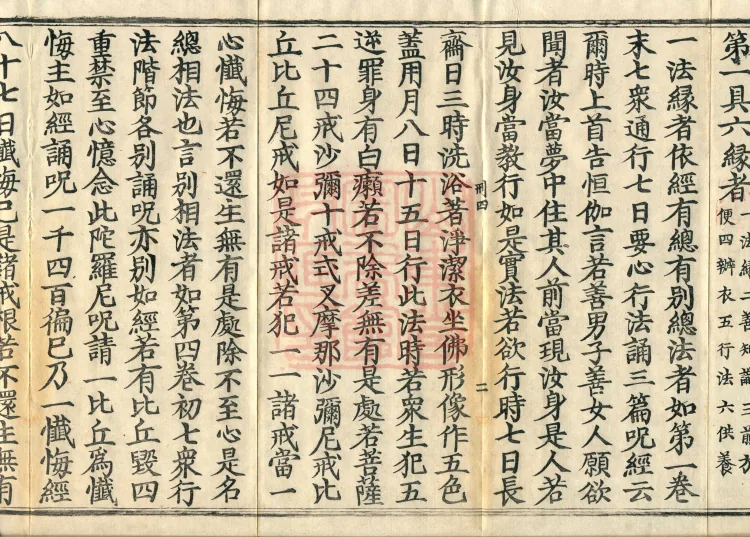 第一具六緣者
便四辦衣五行法六供養
一法緣者依經有總有別總法者如第一卷
末七衆通行七日要心行法誦三篇呪經云
爾時上首告恒伽言若善男子善女人願欲
聞者汝當夢中住其人前當現汝身是人若
見汝身當教行如是實法若欲行時七日長
刑四
二
齋日三時洗浴著淨潔衣坐佛形像作五色
蓋用月八日十五日行此法時若衆生犯五
逆罪身有白癩若不除差無有是處若菩薩
二十四戒沙彌十戒式叉摩那沙彌尼戒比
丘比丘尼戒如是諸戒若犯一一諸戒當一
心懺悔若不還生無有是處除不至心是名
總相法也言別相法者如第四卷初七衆行
法階節各別誦呪亦別如經若有比丘毀四
重禁至心憶念此陀羅尼呪請一比丘爲懺
悔主如經誦呪一千四百徧已乃一懺悔經
八十七日懺悔已是諸戒根若不還生無有